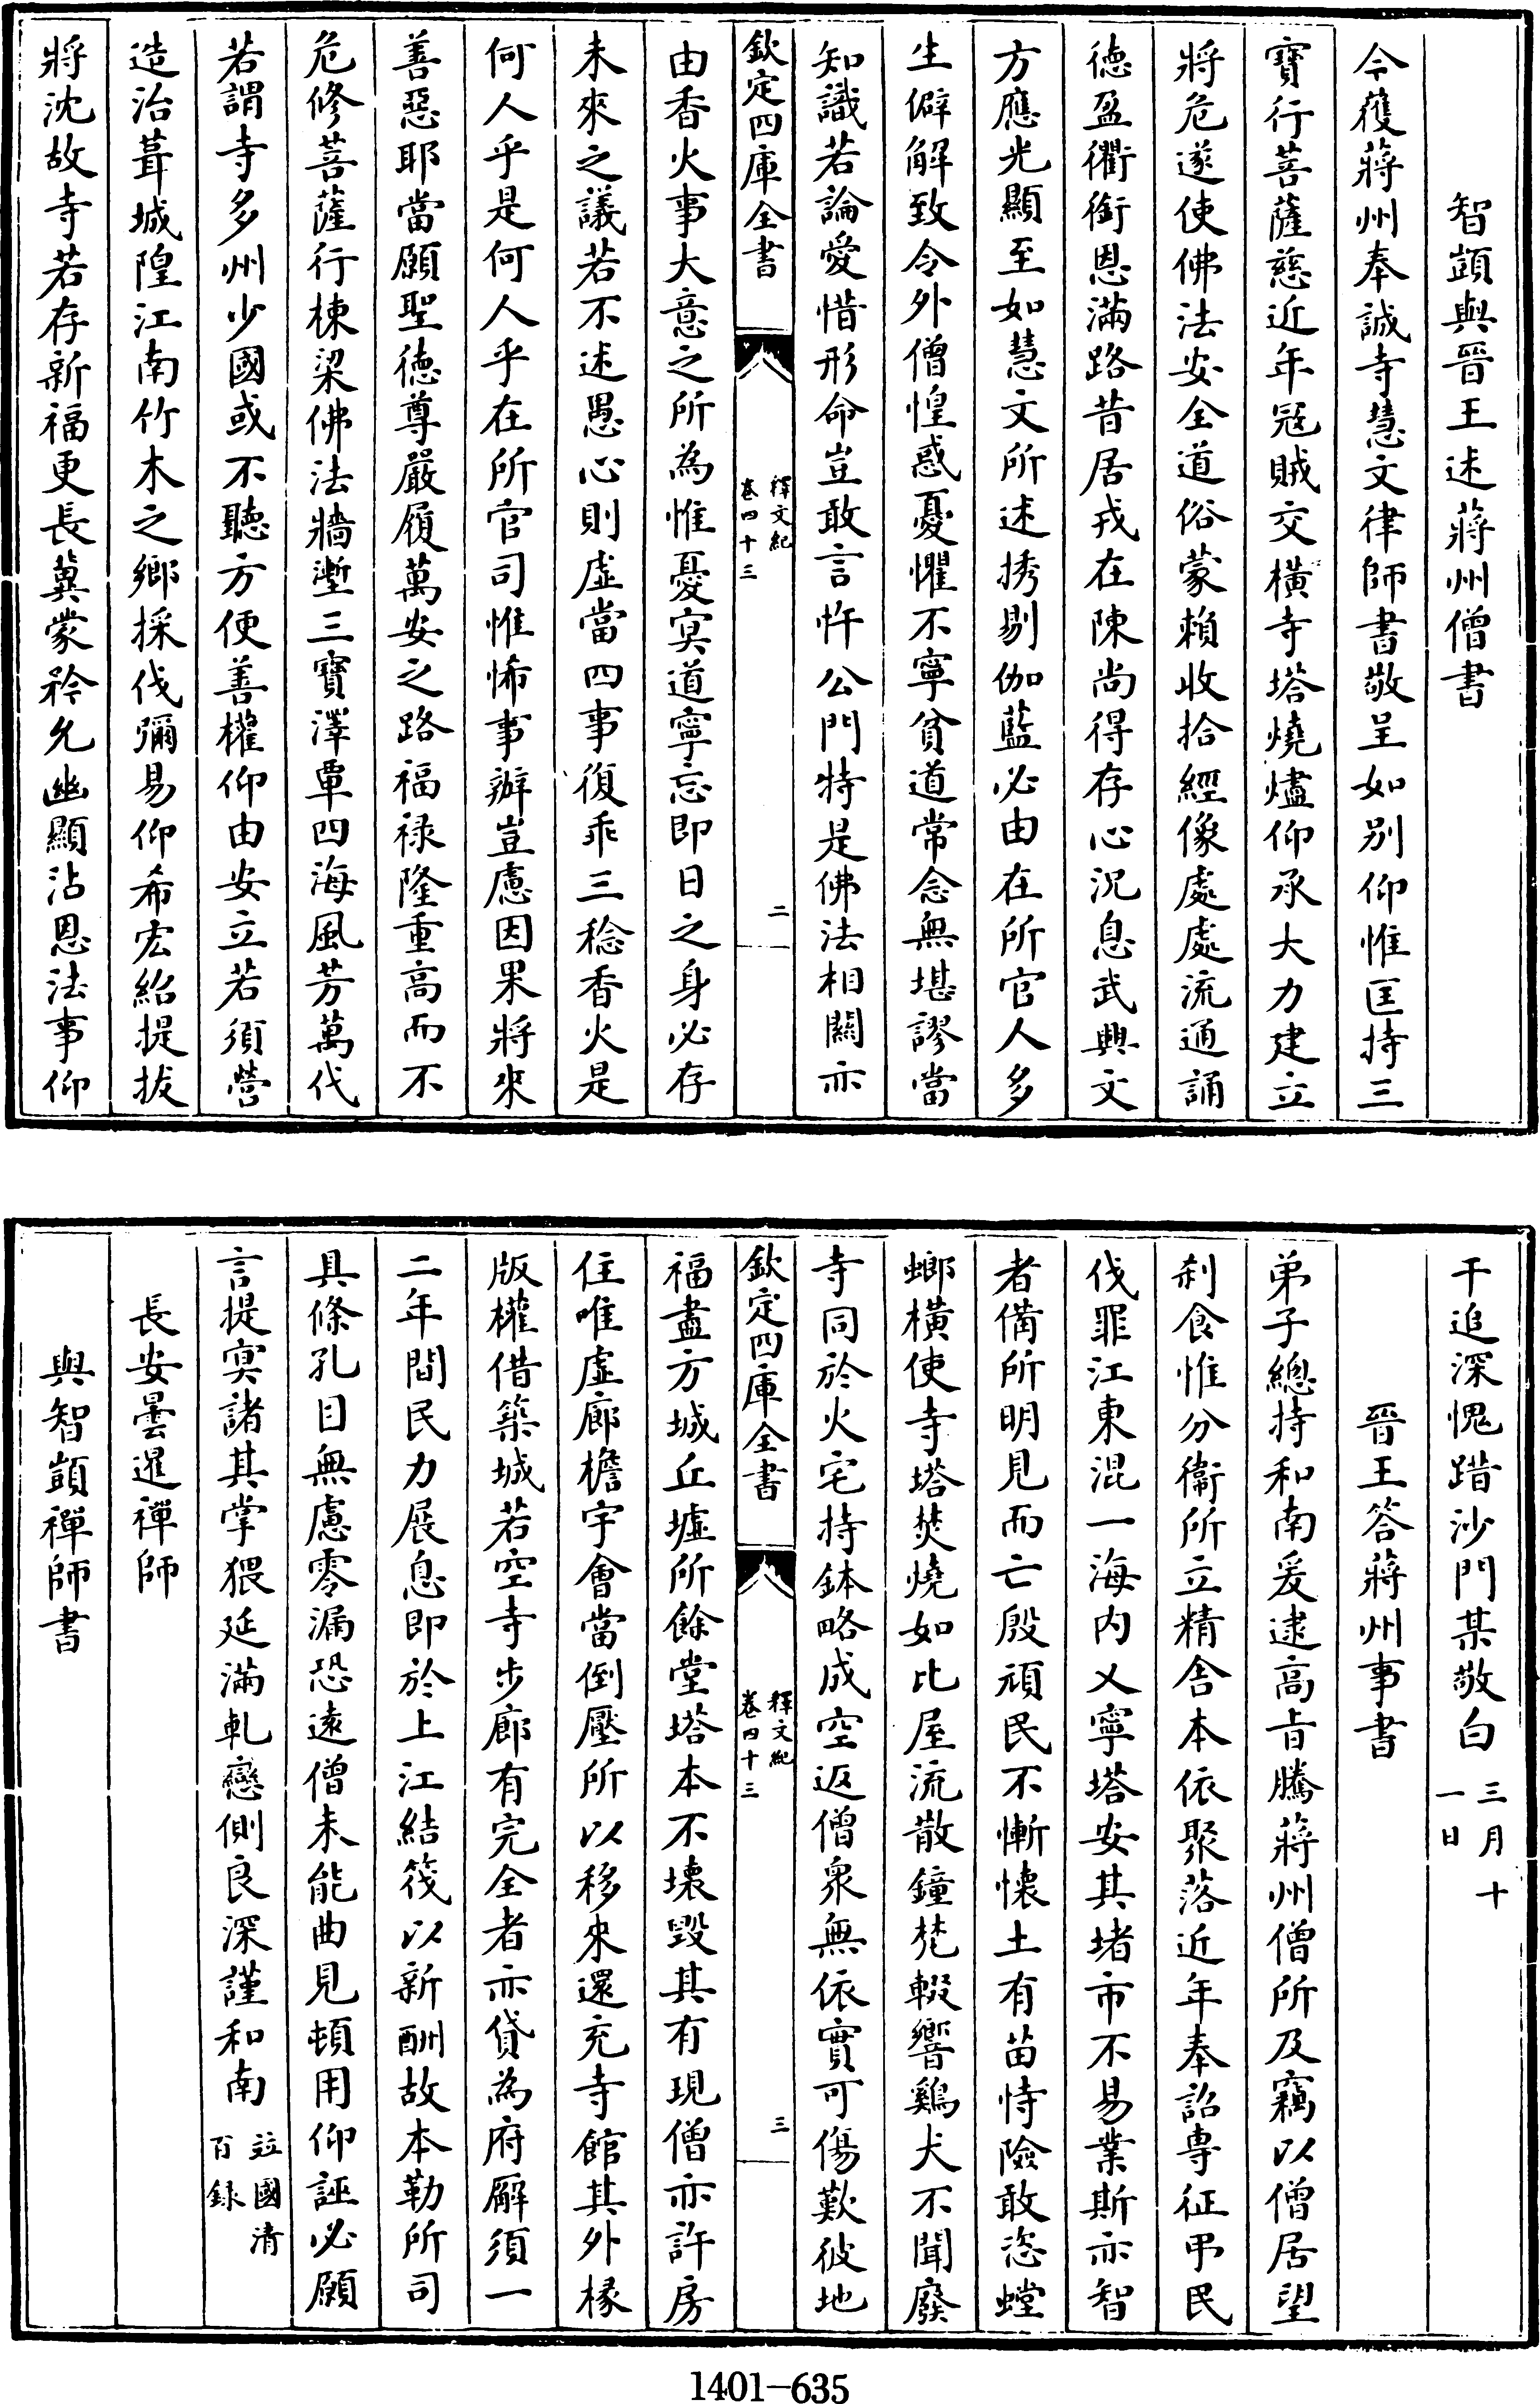 智顗與晉王述蔣州僧書
今穫蔣州奉誠寺慧文律師書敬呈如别仰惟匡持三
寶行菩薩慈近年冦賊交橫寺塔燒燼仰承大力建立
將危遂使佛法安全道俗蒙賴收拾經像處處流通誦
徳盈衢銜恩滿路昔居戎在陳尚得存心況息武興文
方應光顯至如慧文所述撓剔伽藍必由在所官人多
生僻解致令外僧惶惑憂懼不寧貧道常念無堪謬當
知識若論愛惜形命豈敢言忤公門特是佛法相關亦
欽定四庫全書
釋文紀
卷四十三
二
由香火事大意之所為惟憂㝠道寧忘即日之身必存
未來之議若不述愚心則虚當四事復乖三稔香火是
何人乎是何人乎在所官司惟怖事辦豈慮因果將來
善惡耶當願聖徳尊嚴履萬安之路福禄隆重高而不
危修菩薩行棟梁佛法牆塹三寶澤覃四海風芳萬代
若謂寺多州少國或不聽方便善權仰由安立若須營
造治葺城隍江南竹木之鄉採伐彌易仰希宏紹提拔
將沈故寺若存新福更長冀蒙矜允幽顯沾恩法事仰
干追深愧踖沙門某敬白
三月十
一日
晉王答蔣州事書
弟子總持和南爰逮高旨騰蔣州僧所及竊以僧居望
刹食惟分衞所立精舍本依聚落近年奉詔專征弔民
伐罪江東混一海内乂寧塔安其堵市不易業斯亦智
者備所明見而亡殷頑民不慚懷土有苗恃險敢恣螳
螂橫使寺塔焚燒如比屋流散鐘梵輟響鷄犬不聞廢
寺同於火宅持鉢略成空返僧衆無依實可傷歎彼地
欽定四庫全書
釋文紀
卷四十三
三
福盡方城丘墟所餘堂塔本不壊毁其有現僧亦許房
住唯虚廊檐宇會當倒壓所以移來還充寺館其外椽
版權借築城若空寺步廊有完全者亦貸為府廨須一
二年間民力展息即於上江結筏以新酬故本勒所司
具條孔目無慮零漏恐逺僧未能曲見頓用仰誣必願
言提㝠諸其掌猥延滿軋戀側良深謹和南
並國清
百錄
長安曇暹禪師
與智顗禪師書
1401-635